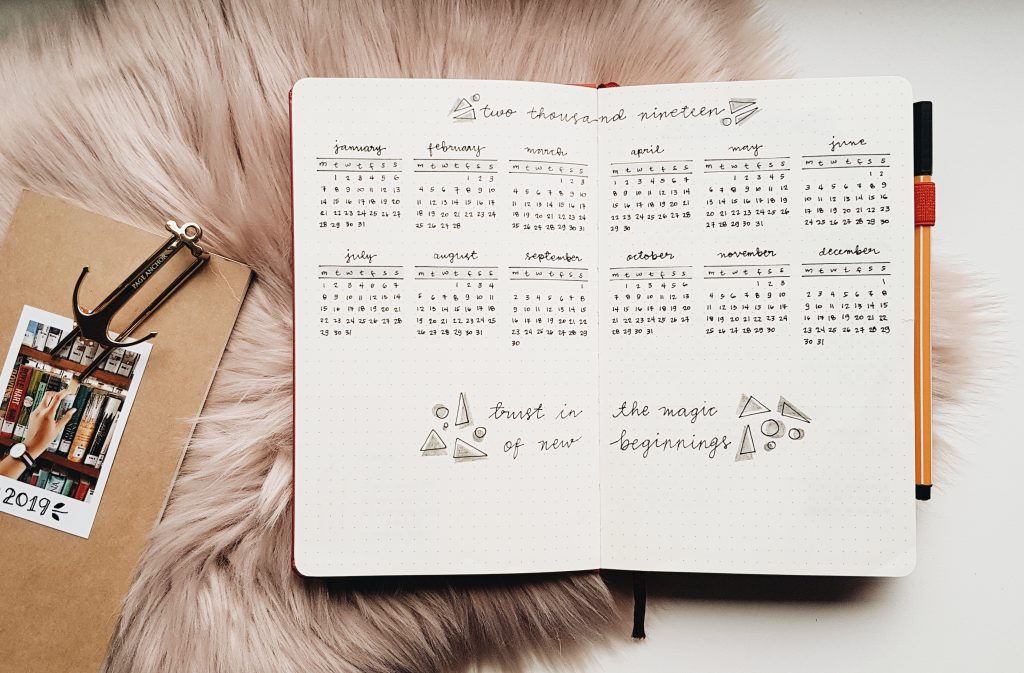 two thousand nineteen
january
m t w t f s s
1 2 3 4 5 6
7 8 9 10 11 12 13
14 15 16 17 18 19 20
21 22 23 24 25 26 27
28 29 30 31
february
m t w t f s s
1 2 3
4 5 6 7 8 9 10
11 12 13 14 15 16 17
18 19 20 21 22 23 24
25 26 27 28
march
m t w t f s s
1 2 3
4 5 6 7 8 9 10
11 12 13 14 15 16 17
18 19 20 21 22 23 24
25 26 27 28 29 30 31
april
m t w t f s s
1 2 3 4 5 6 7
8 9 10 11 12 13 14
15 16 17 18 19 20 21
22 23 24 25 26 27 28
29 30
may
m t w t f s s
1 2 3 4 5
6 7 8 9 10 11 12
13 14 15 16 17 18 19
20 21 22 23 24 25 26
27 28 29 30 31
june
m t w t f s s
1 2
3 4 5 6 7 8 9
10 11 12 13 14 15 16
17 18 19 20 21 22 23
24 25 26 27 28 29 30
july
m t w t f s s
1 2 3 4 5 6 7
8 9 10 11 12 13 14
15 16 17 18 19 20 21
22 23 24 25 26 27 28
29 30 31
august
m t w t f s s
1 2 3 4
5 6 7 8 9 10 11
12 13 14 15 16 17 18
19 20 21 22 23 24 25
26 27 28 29 30 31
september
m t w t f s s
1
2 3 4 5 6 7 8
9 10 11 12 13 14 15
16 17 18 19 20 21 22
23 24 25 26 27 28 29
30
october
m t w t f s s
1 2 3 4 5 6
7 8 9 10 11 12 13
14 15 16 17 18 19 20
21 22 23 24 25 26 27
28 29 30 31
november
m t w t f s s
1 2 3
4 5 6 7 8 9 10
11 12 13 14 15 16 17
18 19 20 21 22 23 24
25 26 27 28 29 30
december
m t w t f s s
1
2 3 4 5 6 7 8
9 10 11 12 13 14 15
16 17 18 19 20 21 22
23 24 25 26 27 28 29
30 31
trust in the magic
of new beginnings
PAGE ANCHOR
2019